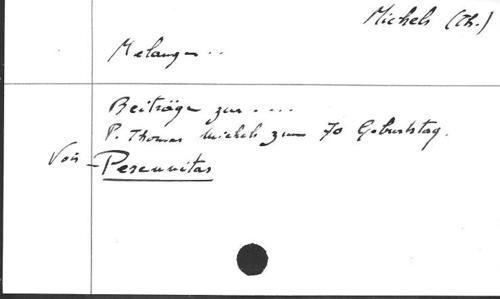 Michels (Th.)
Melanges..
Beiträge zur....
P. Thomas Michels zum 70 Geburtstag.
Voir - Perennitas